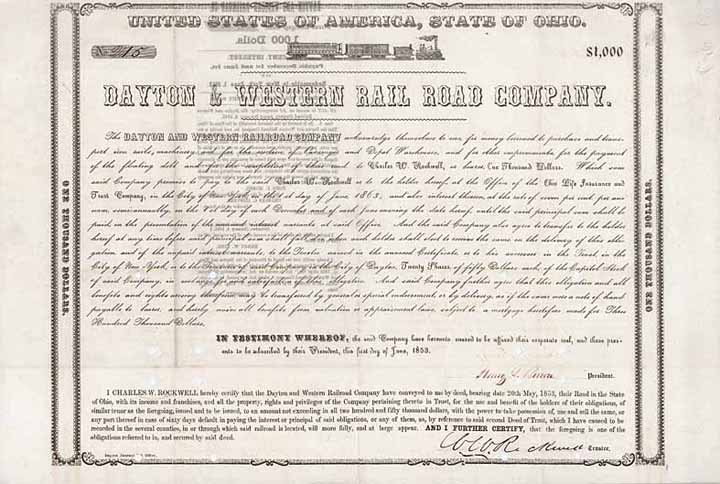 UNITED STATES OF AMERICA, STATE OF OHIO.
1,000 Dolls.
No 215
$1,000
DAYTON & WESTERN RAIL ROAD COMPANY.
The DAYTON AND WESTERN RAILROAD COMPANY acknowledge themselves to owe, for money borrowed to purchase and transport iron rails, machinery, and for the erection of Carriage and Depot Warehouses, and for other improvements, for the payment
of the floating debt and for the completion of their road to Charles W. Rockwell, or bearer, One Thousand Dollars. Which sum
said Company promises to pay to the said Charles W. Rockwell or to the holder hereof, at the Office of the Ohio Life Insurance and
Trust Company, in the City of New York, on the 1st day of June, 1863, and also interest thereon, at the rate of seven per cent. per annum,
semi-annually, on the 1st day of each December and of each June
paid on the presentation of the interest warrants, at said Office. And the said Company also agree to transfer to the holder
hereof at any time before said principal sum shall fall due
City of New York, or to the Treasurer of said Company in the City of Dayton, Twenty Shares of fifty Dollars each, of the Capital Stock
of said Company, in exchange for and satisfaction of this obligation. And said Company further agree that this obligation and all
benefits and rights
payable to bearer, and hereby waive all benefit from valuation or appraisement laws, subject to a mortgage heretofore made for Three
Hundred Thousand Dollars.
IN TESTIMONY WHEREOF, the said Company have hereunto caused to be affixed their corporate seal, and these presents to be subscribed by their President, this first day of June, 1853.
President.
I CHARLES W. ROCKWELL hereby certify that the Dayton and Western Railroad Company have conveyed to me by deed, bearing date 20th May, 1853, their Road in the State
of Ohio, with its income and franchises, and all the property, rights and privileges of the Company pertaining thereto in Trust, for the use and benefit of the holders of their obligations, of
similar tenor as the foregoing, issued and to be issued, to an amount not exceeding in all two hundred and fifty thousand dollars, with the power to take possession of, use and sell the same, or
any part thereof in case of sixty days default in paying the interest or principal of said obligations, or any of them, as, by reference to said second Deed of Trust, which I have caused to be
recorded in the several counties, in or through which said railroad is located, will more fully, and at large appear. AND I FURTHER CERTIFY, that the foregoing is one of the
obligations referred to in, and secured by said deed.
Trustee.
ONE THOUSAND DOLLARS.
ONE THOUSAND DOLLARS.